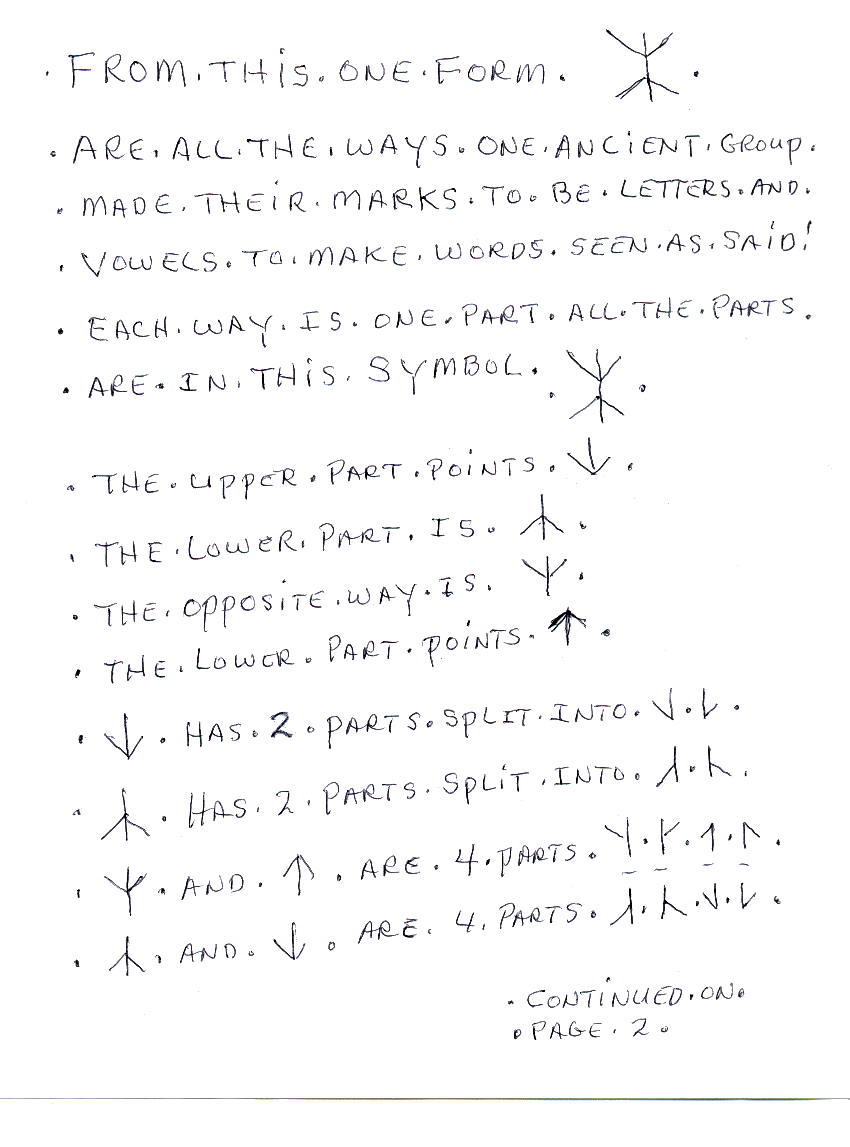 · FROM · THiS · ONE · FORM · ·
· ARE · ALL · THE · WAYS · ONE · ANCiENT · GROup ·
· MADE · THEiR · MARKS · TO · BE · LETTERS · AND ·
· VOWELS · TO · MAKE · WORDS · SEEN · AS · SAiD!
· EACH · WAY · IS · ONE · PART · ALL · THE · PARTS ·
· ARE · IN · THiS · SYMBOL · · ·
· THE · UppER · PART · POiNTS · ↓ ·
· THE · LOWER · PART · IS · ⅄ ·
· THE · OppOSiTE · WAY · IS · Y ·
· THE · LOWER · PART · pOiNTS · ↑ ·
· ↓ · HAS · 2 · PARTS · SPLIT · INTO · ·
· · HAS · 2 · PARTS · SpLiT · INTO · ·
· · AND · ↑ · ARE · 4 · pARTS · · · · ·
· · AND · ↓ · ARE · 4 · PARTS · · · · ·
· CONTiNUED · ON ·
· PAGE · 2 ·